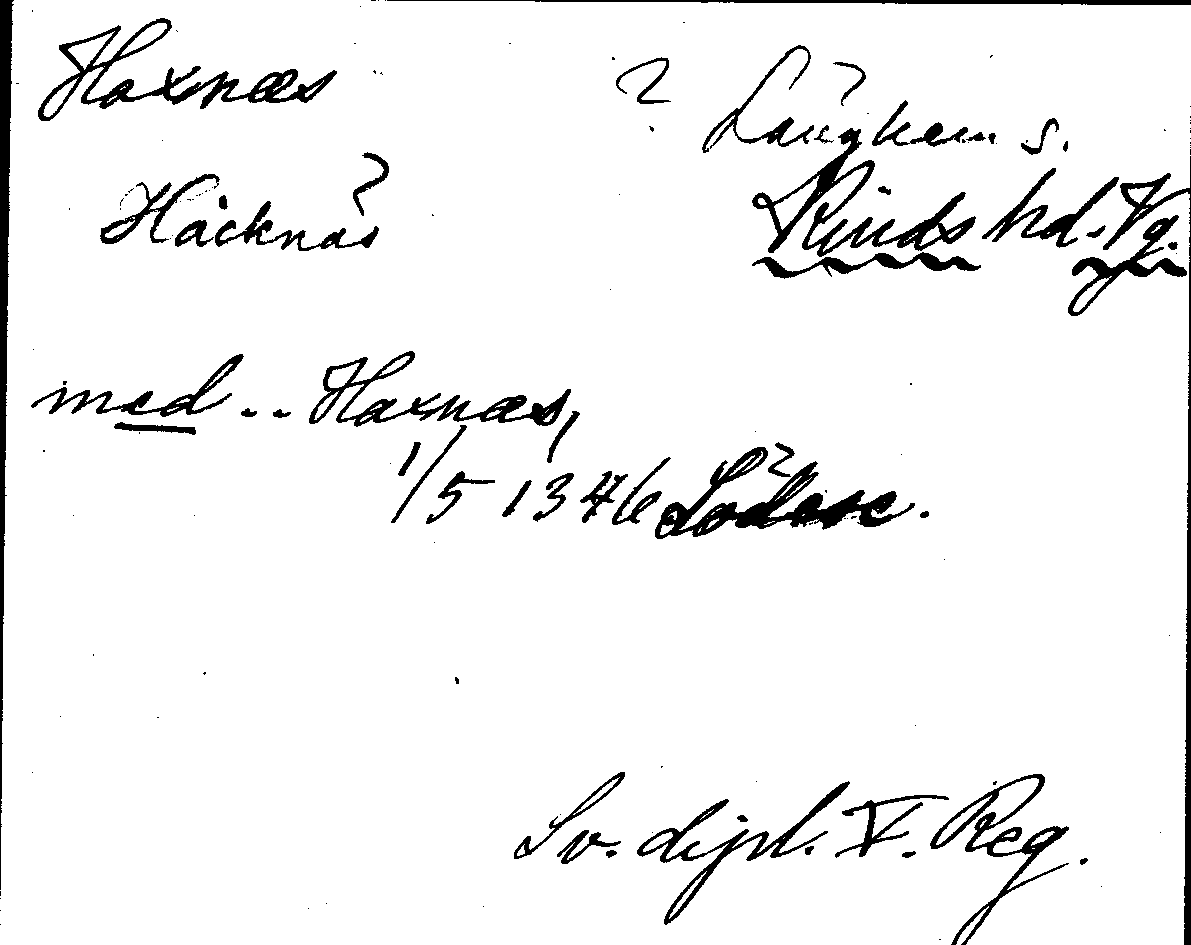 Haxnæs
? Länghem s.
Häcknäs ?
Kinds hd. Vg.
med .. Haxnæs,
1/5 1346 Lödese ?.
Sv. dipl. V. Reg.